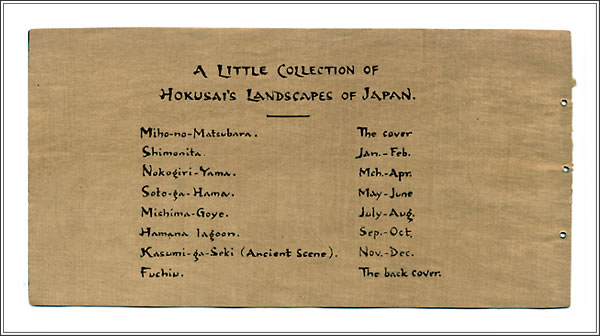 A LITTLE COLLECTION OF
HOKUSAI'S LANDSCAPES OF JAPAN.
Miho-no-Matsubara. The cover
Shimonita. Jan.-Feb.
Nokogiri-Yama. Mch.-Apr.
Soto-ga-Hama. May-June
Mishima-Goye. July-Aug.
Hamana lagoon. Sep.-Oct.
Kasumi-ga-Seki (Ancient Scene). Nov.-Dec.
Fuchiu. The back cover.